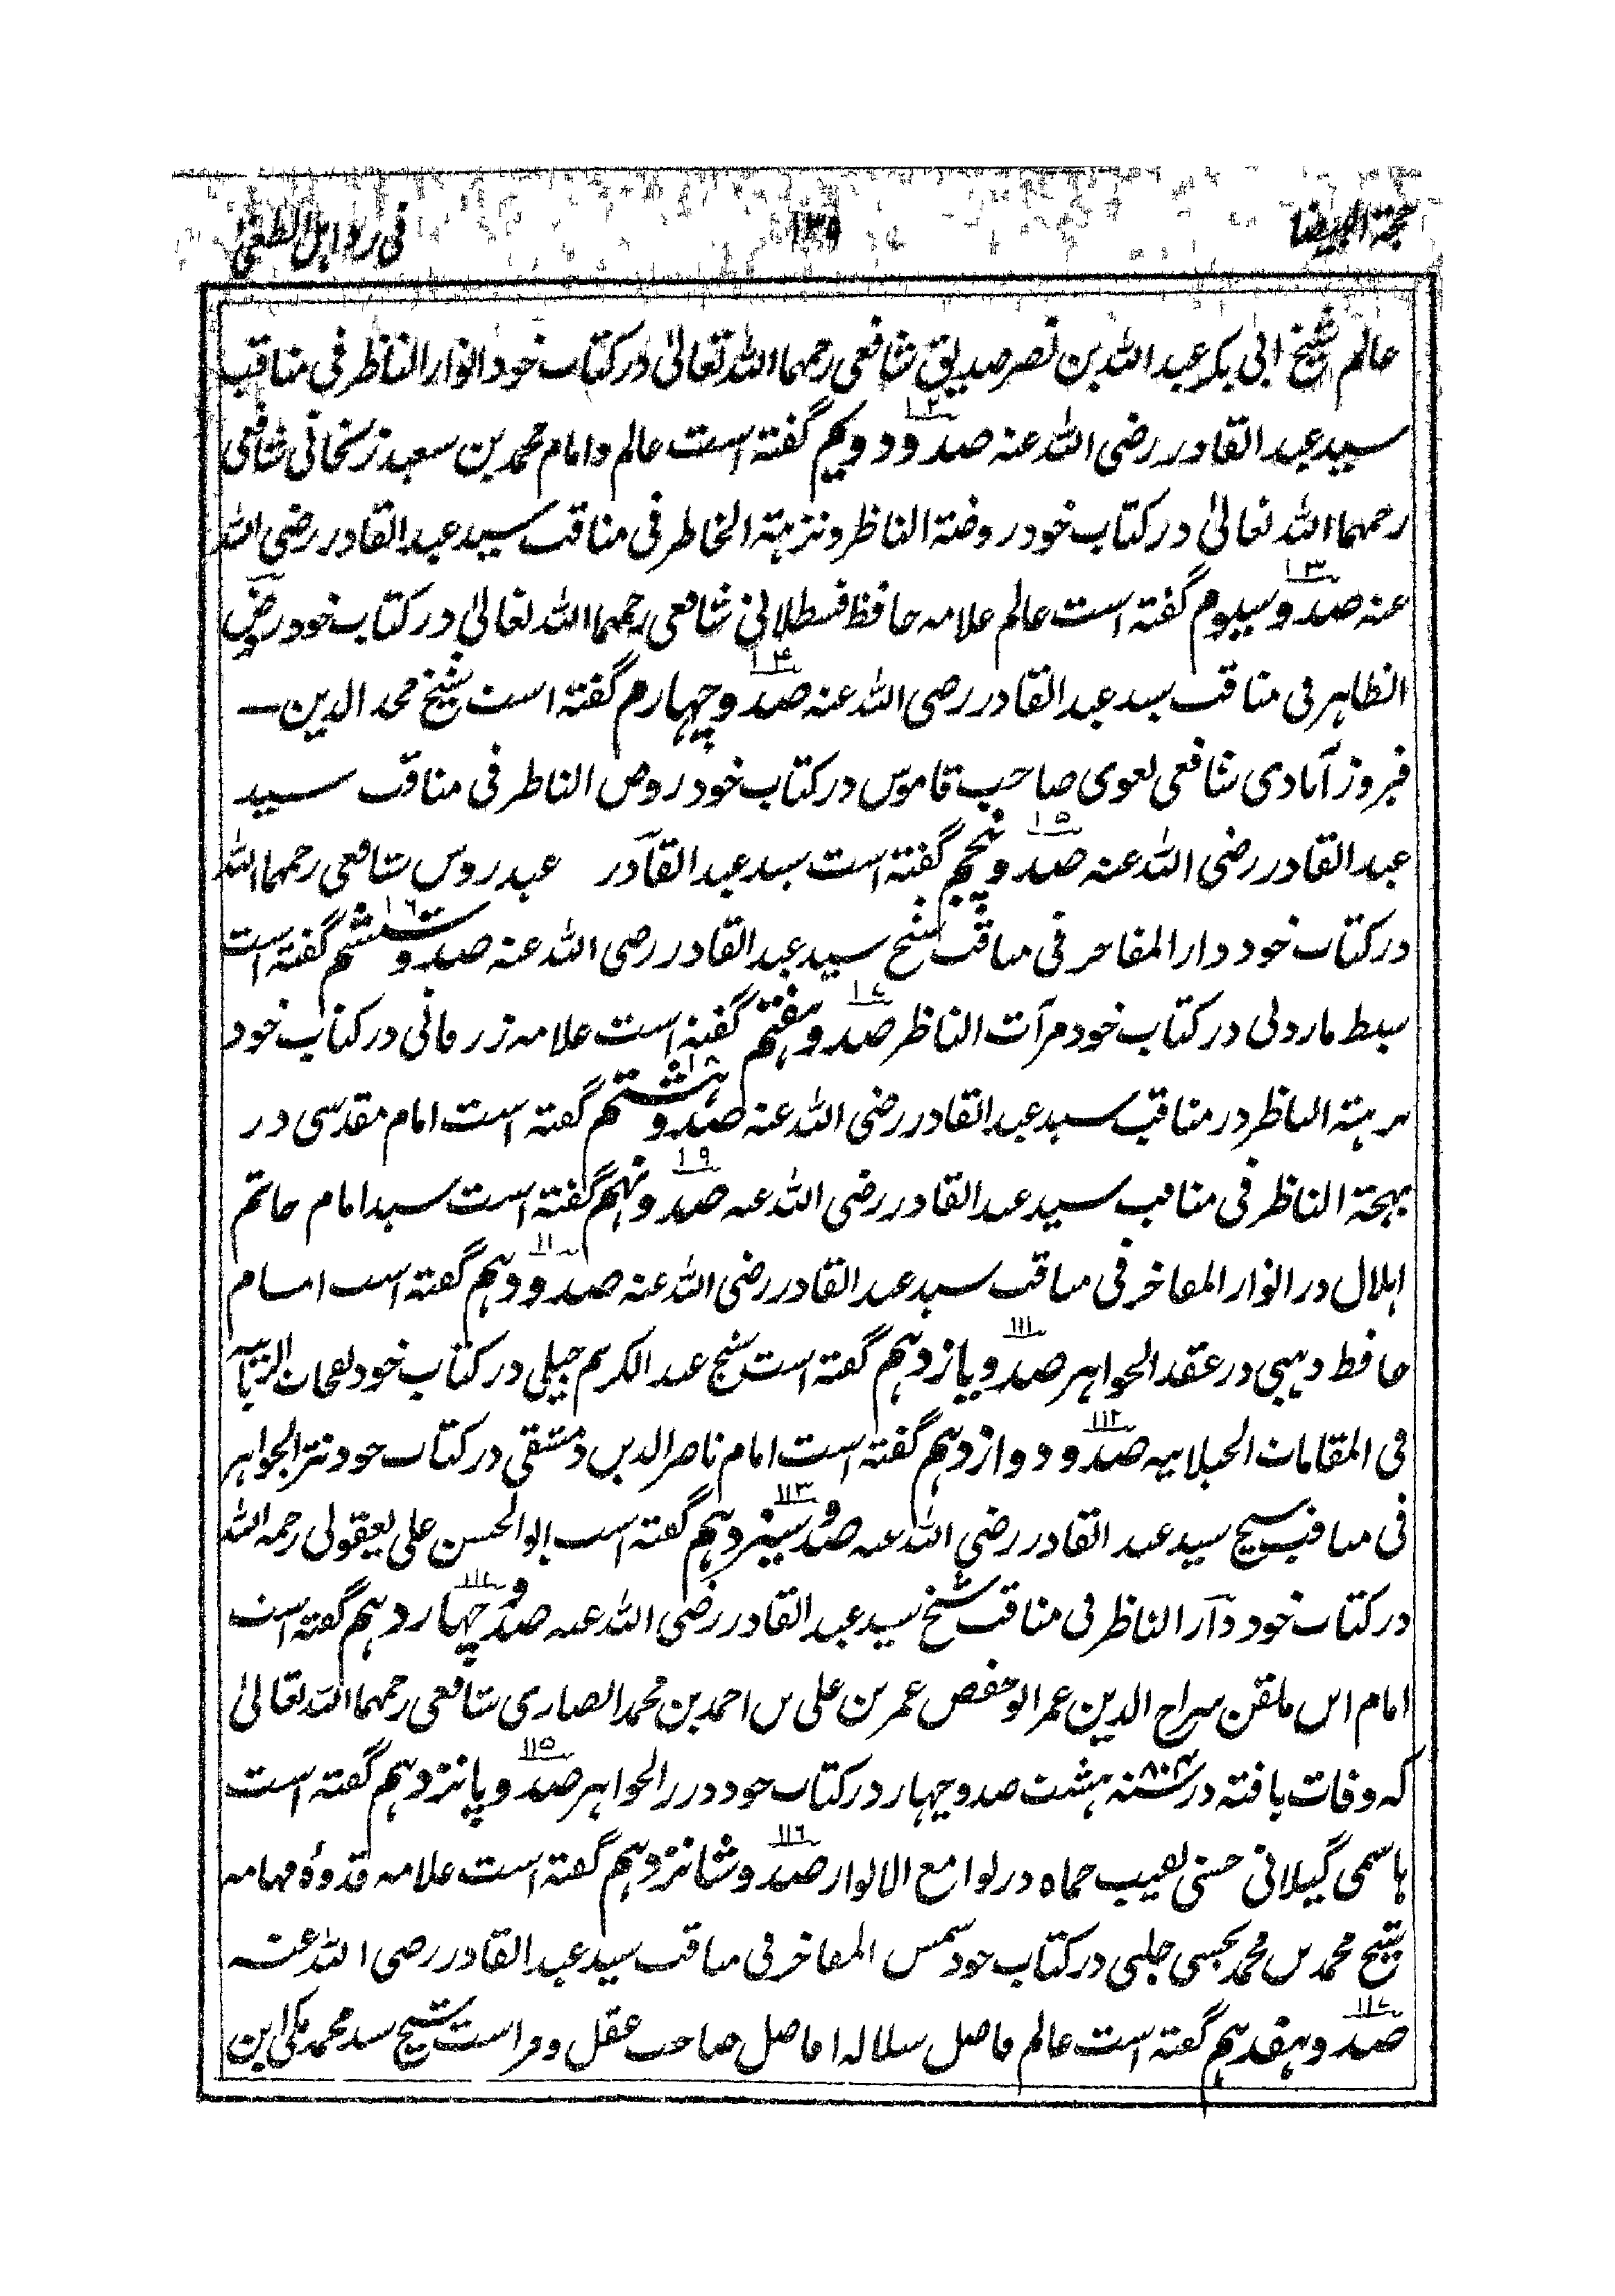 حجة البیضا ١٣٥ فی
عالم شیخ ابی بکر عبد الله بن نصر صدیق شافعی رحمهما الله تعالیٰ در کتاب خود انوار الناظر فی مناقب
سید عبد القادر رضی الله عنه صد و دویم گفته است عالم و امام محمد بن سعید زنخانی شافعی
رحمهما الله تعالیٰ در کتاب خود روضة الناظر و نزهة الخاطر فی مناقب سید عبد القادر رضی الله
عنه صد و سیوم گفته است عالم علامه حافظ قسطلانی شافعی رحمهما الله تعالیٰ در کتاب خود روض
الظاهر فی مناقب سید عبد القادر رضی الله عنه صد و چهارم گفته است شیخ مجد الدین
فیروز آبادی شافعی لغوی صاحب قاموس در کتاب خود روض الناظر فی مناقب سید
عبد القادر رضی الله عنه صد و پنجم گفته است سید عبد القادر عیدروس شافعی رحمهما الله
در کتاب خود دار المفاخر فی مناقب شیخ سید عبد القادر رضی الله عنه صد و ششم گفته است
سبط ماردلی در کتاب خود مرآت الناظر صد و هفتم گفته است علامه زرمانی در کتاب خود
نزهة الناظر در مناقب سید عبد القادر رضی الله عنه صد و هشتم گفته است امام مقدسی در
بهجة الناظر فی مناقب سید عبد القادر رضی الله عنه صد و نهم گفته است سید امام حاتم
اهلال در انوار المفاخر فی مناقب سید عبد القادر رضی الله عنه صد و دهم گفته است امام
حافظ ذهبی در عقد الجواهر صد و یازدهم گفته است شیخ عبد الکریم جیلی در کتاب خود
فی المقامات الجیلانیه صد و دوازدهم گفته است امام ناصر الدین دمشقی در کتاب خود نثر الجواهر
فی مناقب شیخ سید عبد القادر رضی الله عنه صد و سیزدهم گفته است ابو الحسن علی یعقوبی رحمه الله
در کتاب خود دآر الناظر فی مناقب شیخ سید عبد القادر رضی الله عنه صد و چهاردهم گفته است
امام ابن ملقن سراج الدین عمر ابو حفص عمر بن علی بن احمد بن محمد انصاری شافعی رحمهما الله تعالیٰ
که وفات یافته در سنه ٨٠٤ هشت صد و چهار در کتاب خود درر الجواهر صد و پانزدهم گفته است
هاشمی گیلانی حسنی نقیب حماه در لوامع الانوار صد و شانزدهم گفته است علامه قدوهٔ مهامه
شیخ محمد بن محمد جلبی در کتاب خود شمس المفاخر فی مناقب سید عبد القادر رضی الله عنه
صد و هفدهم گفته است عالم فاضل سلاله افاضل صاحب عقل و فراست شیخ سید محمد مکی ابن